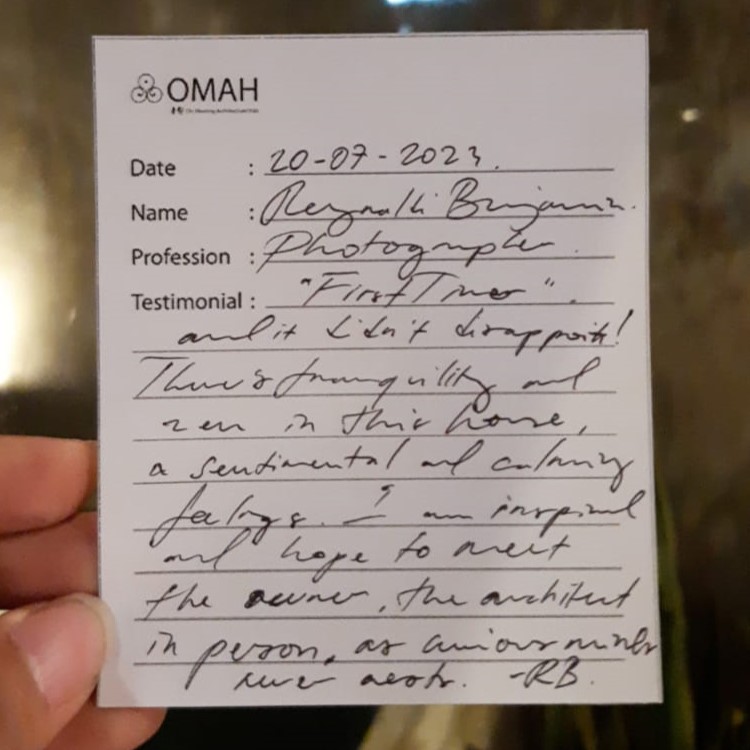 OMAH
Date : 20-07-2023.
Name : Reynalki Benjamin.
Profession : Photographer.
Testimonial : "First Timer".
and it didn't disappoint!
There's tranquility and
zen in this house,
a sentimental and calming
feelings. I am inspired
and hope to meet
the owner, the architect
in person, as curious minds
never rests. -RB.